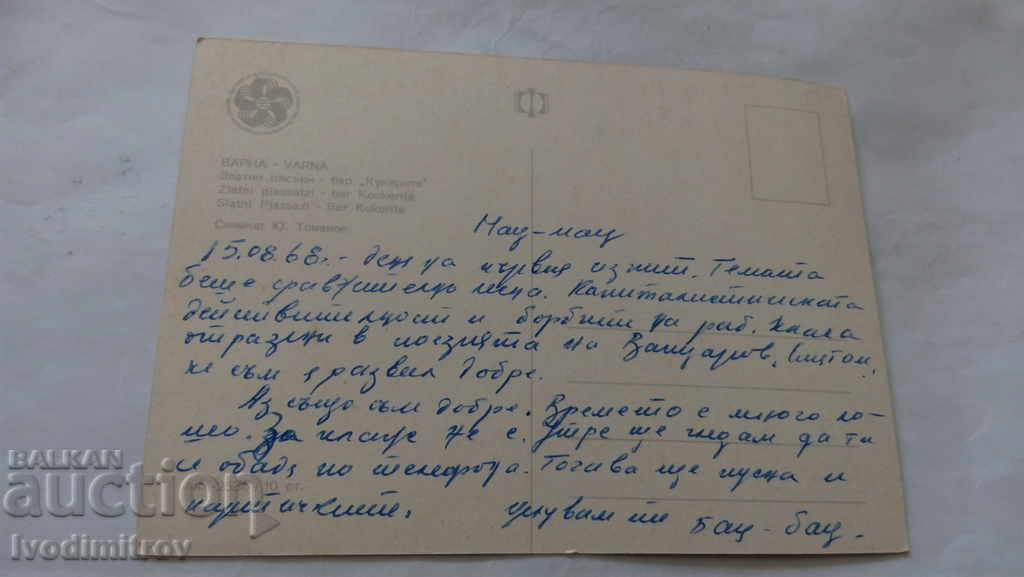 ВАРНА - VARNA
Златни пясъци - бар „Кукерите"
Zlatni piassatzi - bar Kookerite
Slatni Pjassazi - Bar Kukerite
Снимка: Ю. Томанов
Мац-мац
15.08.68г. - ден на първия изпит. Темата
беше сравнително лека. Капиталистическата
действителност и борбите на раб. класа
отразени в поезията на Вапцаров. Смятам,
че съм я развил добре.
Аз също съм добре. Времето е много ло-
шо. За плаж не е. Утре ще гледам да ти
се обадя по телефона. Тогава ще пусна и
картичките.
Целувам те
Бац-бац.
10 ст.
BALKAN
auction
Ivodimitrov